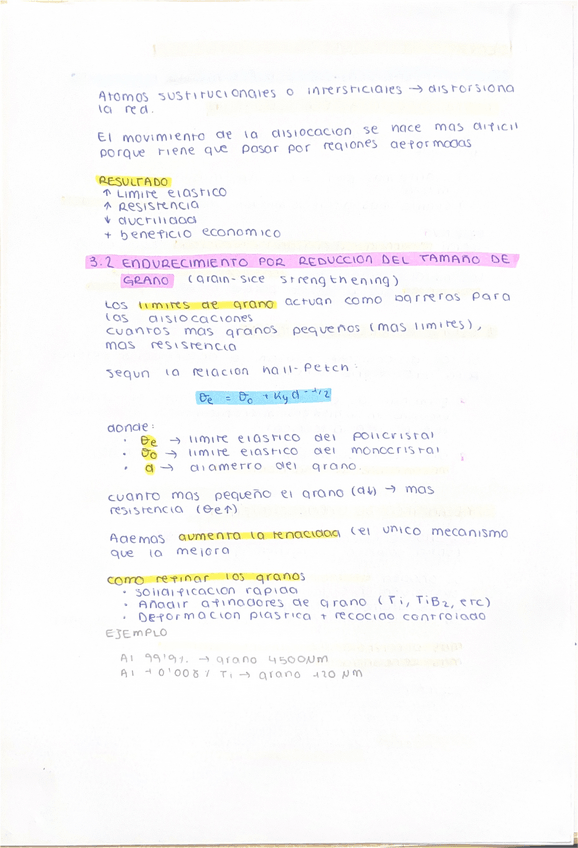 Atomos sustitucionales o intersticiales → distorsiona
la red.
El movimiento de la dislocacion se hace mas dificil
porque tiene que pasar por regiones deformadas
RESULTADO
↑ Limite elastico
↑ Resistencia
↓ ductilidad
+ beneficio economico
3.2 ENDURECIMIENTO POR REDUCCION DEL TAMAÑO DE
GRANO (grain-sice strengthening)
Los limites de grano actuan como barreros para
las dislocaciones
cuantos mas granos pequeños (mas limites),
mas resistencia
segun la relacion hall-Petch:
σe = σo + Ky d^-1/2
donde:
· σe → limite elastico del policristal
· σo → limite elastico del monocristal
· d → diametro del grano.
cuanto mas pequeño el grano (d↓) → mas
resistencia (σe↑)
Ademas aumenta la tenacidad (el unico mecanismo
que la mejora
como refinar los granos
· solidificacion rapida
· Añadir afinadores de grano (Ti, TiB2, etc)
· Deformacion plastica + recocido controlado
EJEMPLO
Al 99'9%. → grano 4500 µm
Al + 0'008% Ti → grano 120 µm